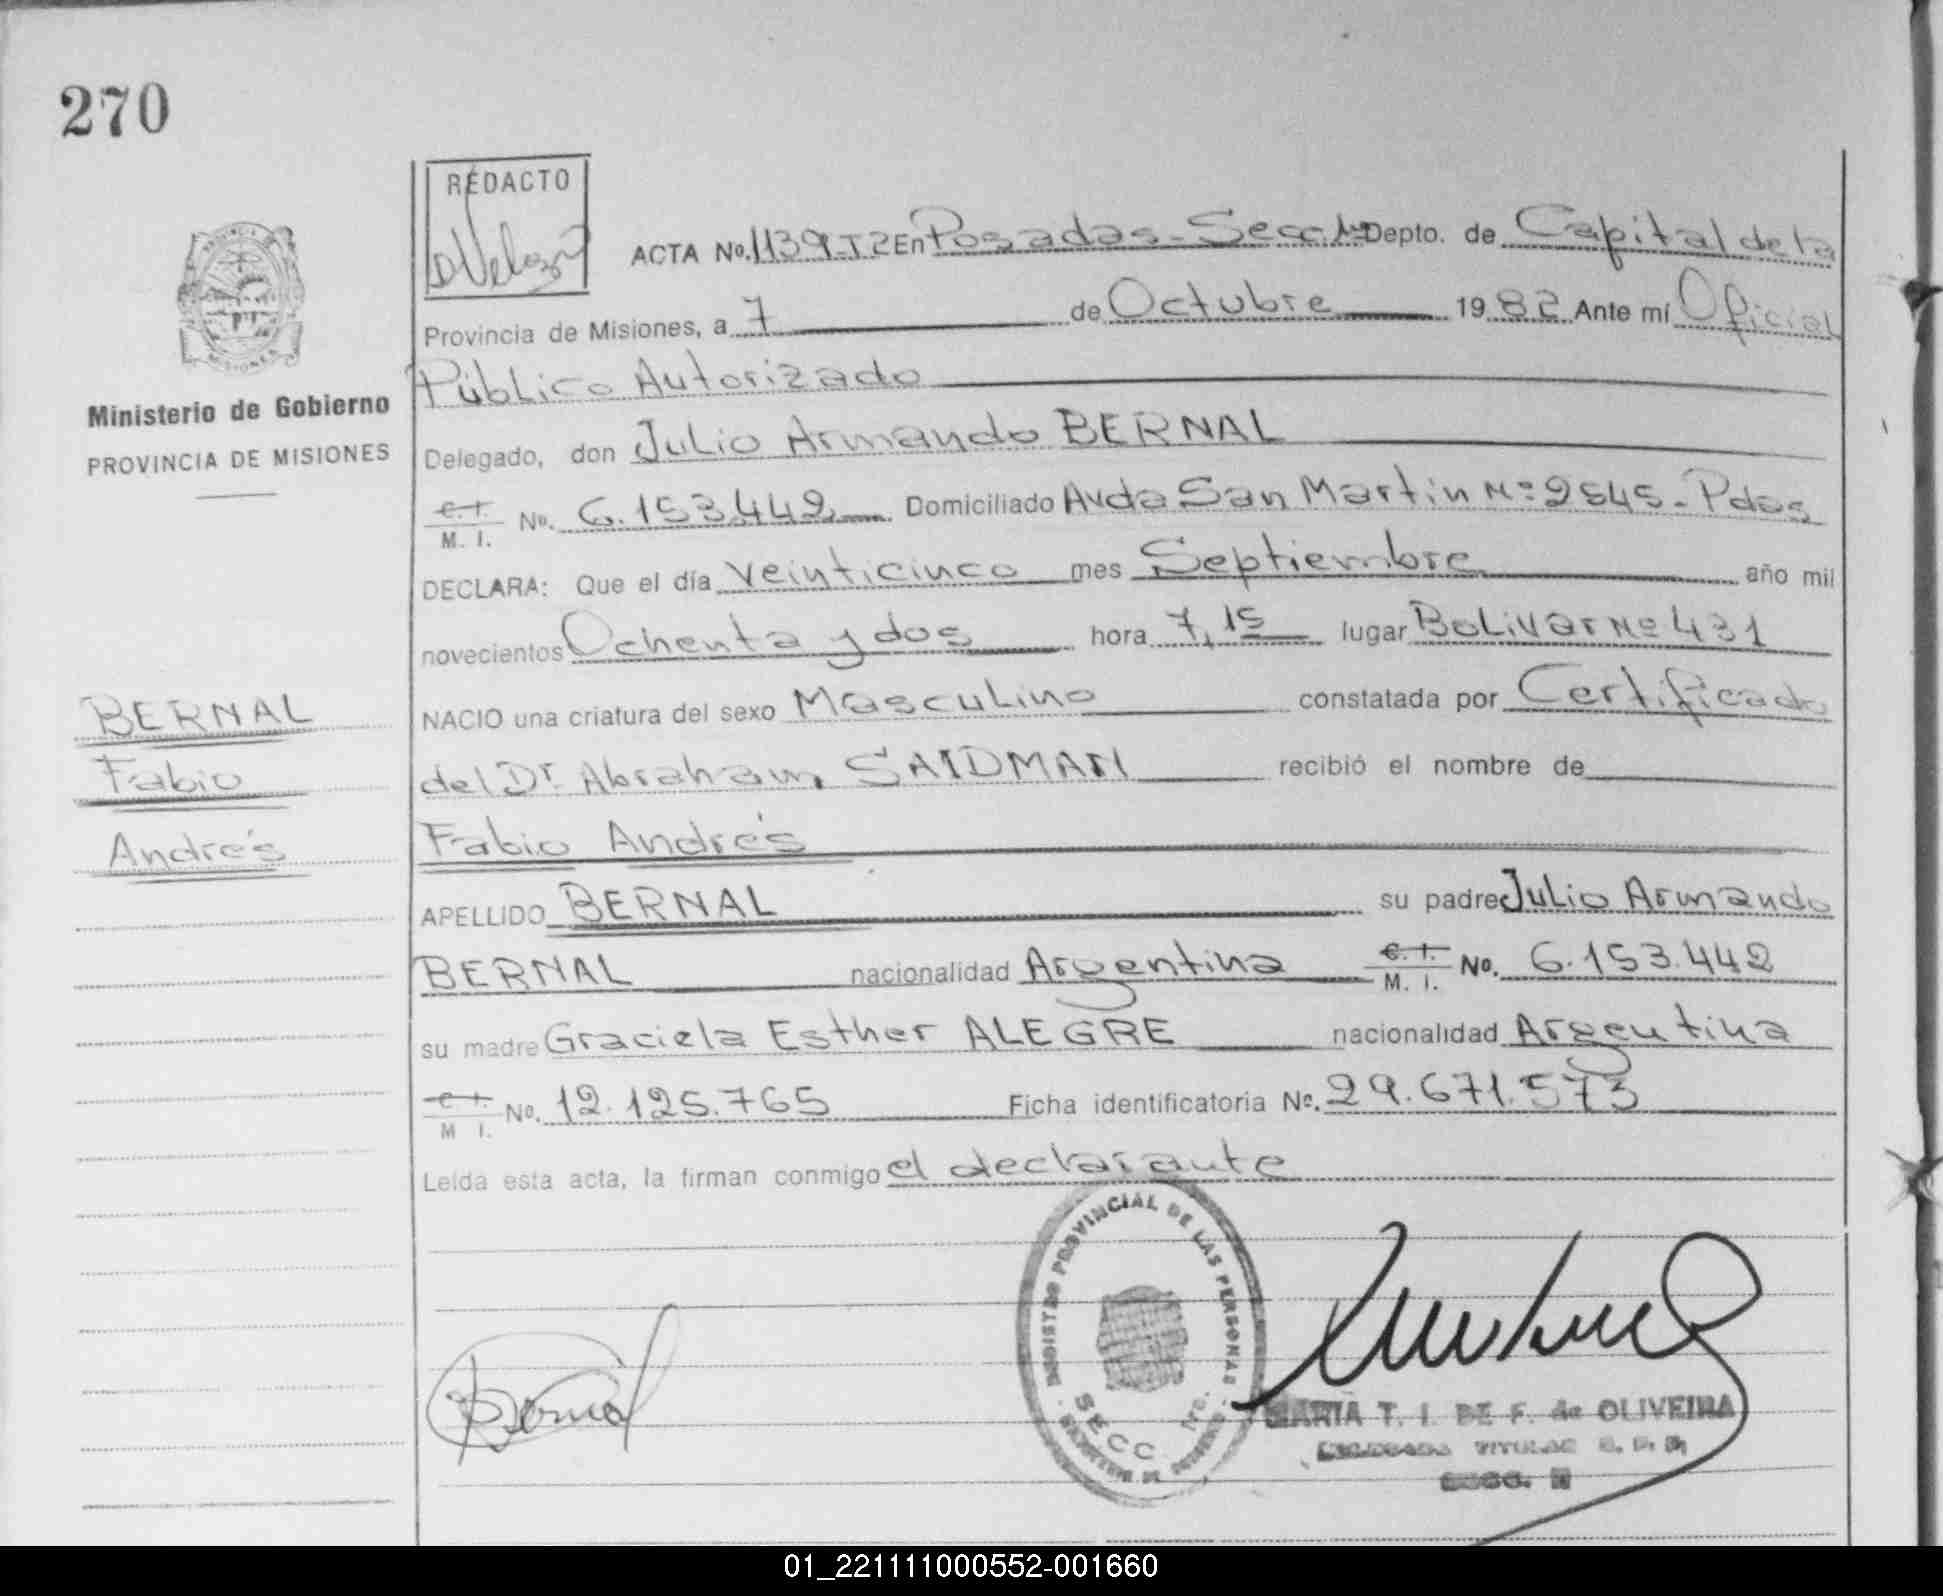 270
REDACTO
ACTA No. 1139-T2 En Posadas - Secc. 1ª Depto. de Capital de la
Provincia de Misiones, a 7 de Octubre 1982 Ante mí Oficial
Público Autorizado
Ministerio de Gobierno
PROVINCIA DE MISIONES
Delegado, don Julio Armando BERNAL
C. I.
M. I. No. 6.153.442 Domiciliado Avda San Martín Nº 2545 - Pdas
DECLARA: Que el día veinticinco mes Septiembre año mil
novecientos Ochenta y dos hora 7,15 lugar Bolivar Nº 431
NACIO una criatura del sexo Masculino constatada por Certificado
del Dr. Abraham SAIDMAN recibió el nombre de
Fabio Andrés
BERNAL
Fabio
Andrés
APELLIDO BERNAL su padre Julio Armando
BERNAL nacionalidad Argentina C. I. M. I. No. 6.153.442
su madre Graciela Esther ALEGRE nacionalidad Argentina
C. I.
M. I. No. 12.125.765 Ficha identificatoria Nº. 29.671.573
Leída esta acta, la firman conmigo el declarante
REGISTRO PROVINCIAL DE LAS PERSONAS
SECC.
Bernal
MARIA T. I. DE F. de OLIVEIRA
TITULAR
SECC.
01_221111000552-001660